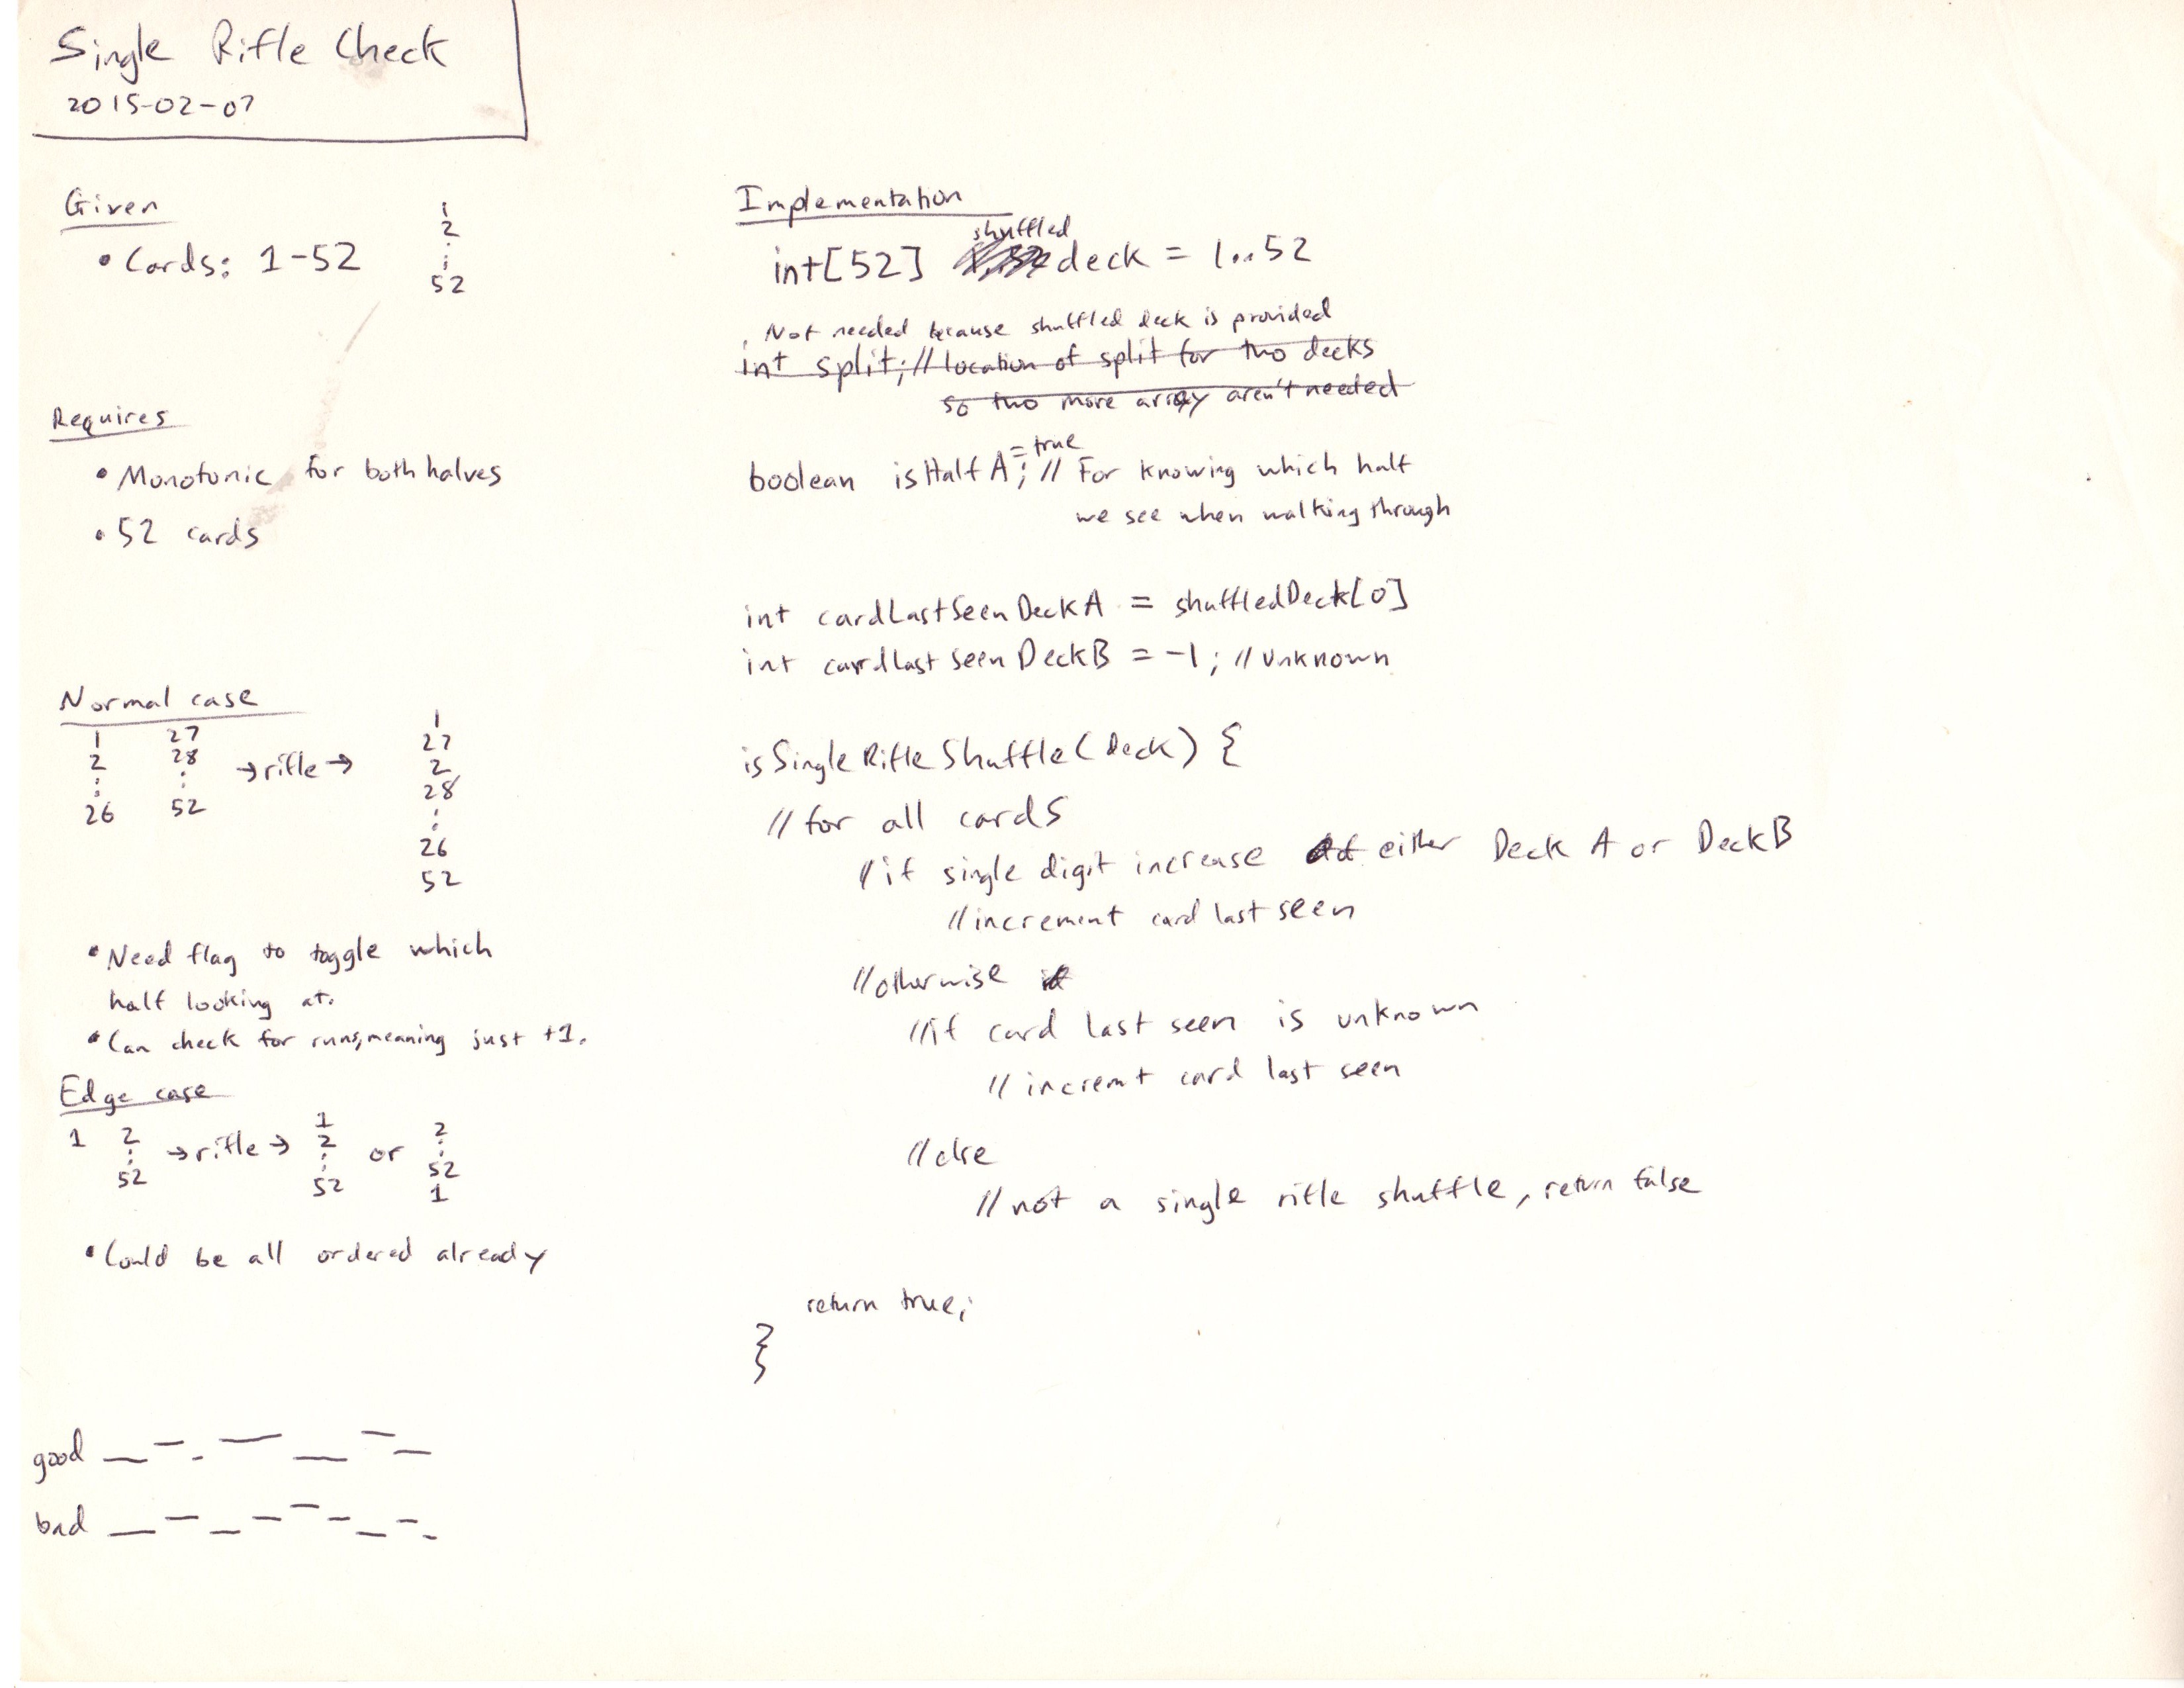 Single Rifle Check
2015-02-07
Given
• Cards: 1-52
1
2
:
52
Requires
• Monotonic for both halves
• 52 cards
Normal case
1 27
2 28 →rifle→
: :
26 52
1
27
2
28
:
26
52
• Need flag to toggle which
half looking at.
• Can check for runs, meaning just +1.
Edge case
1 2 →rifle→ 1 or 2
: 2 :
52 : 52
52 1
• Could be all ordered already
good
bad
Implementation
shuffled
int[52] deck = 1..52
Not needed because shuffled deck is provided
int split; // location of split for two decks
so two more array aren't needed
= true
boolean isHalfA; // For knowing which half
we see when walking through
int cardLastSeenDeckA = shuffledDeck[0]
int cardLastSeenDeckB = -1; // unknown
isSingleRifleShuffle(Deck) {
// for all cards
// if single digit increase either Deck A or Deck B
// increment card last seen
// otherwise
// if card last seen is unknown
// incremt card last seen
// else
// not a single rifle shuffle, return false
return true;
}